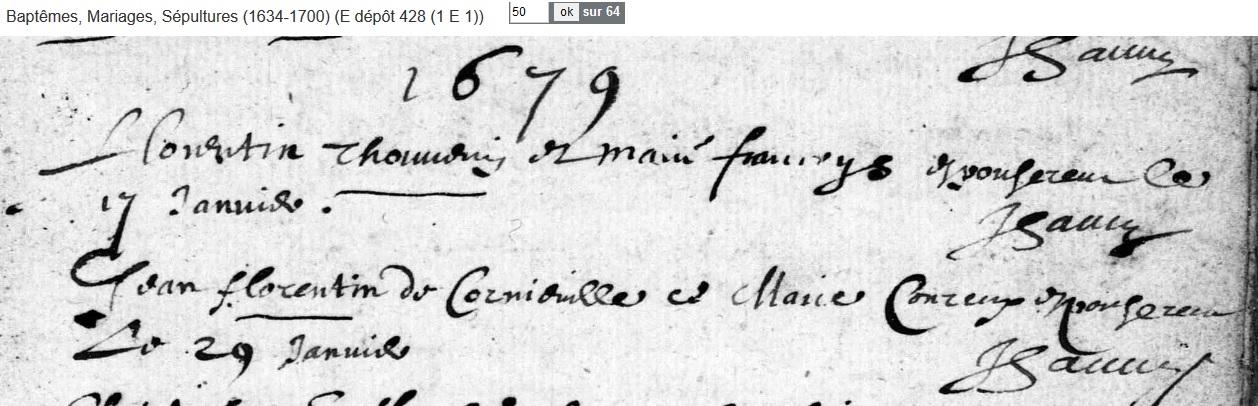 Baptêmes, Mariages, Sépultures (1634-1700) (E dépôt 428 (1 E 1)) 50 ok sur 64
1679
Florentin Thouvenin et Marie françoys espouserent le
17 Janvier.
Jean florentin de Cornieville et Marie Conteux espouserent
Le 29 Janvier